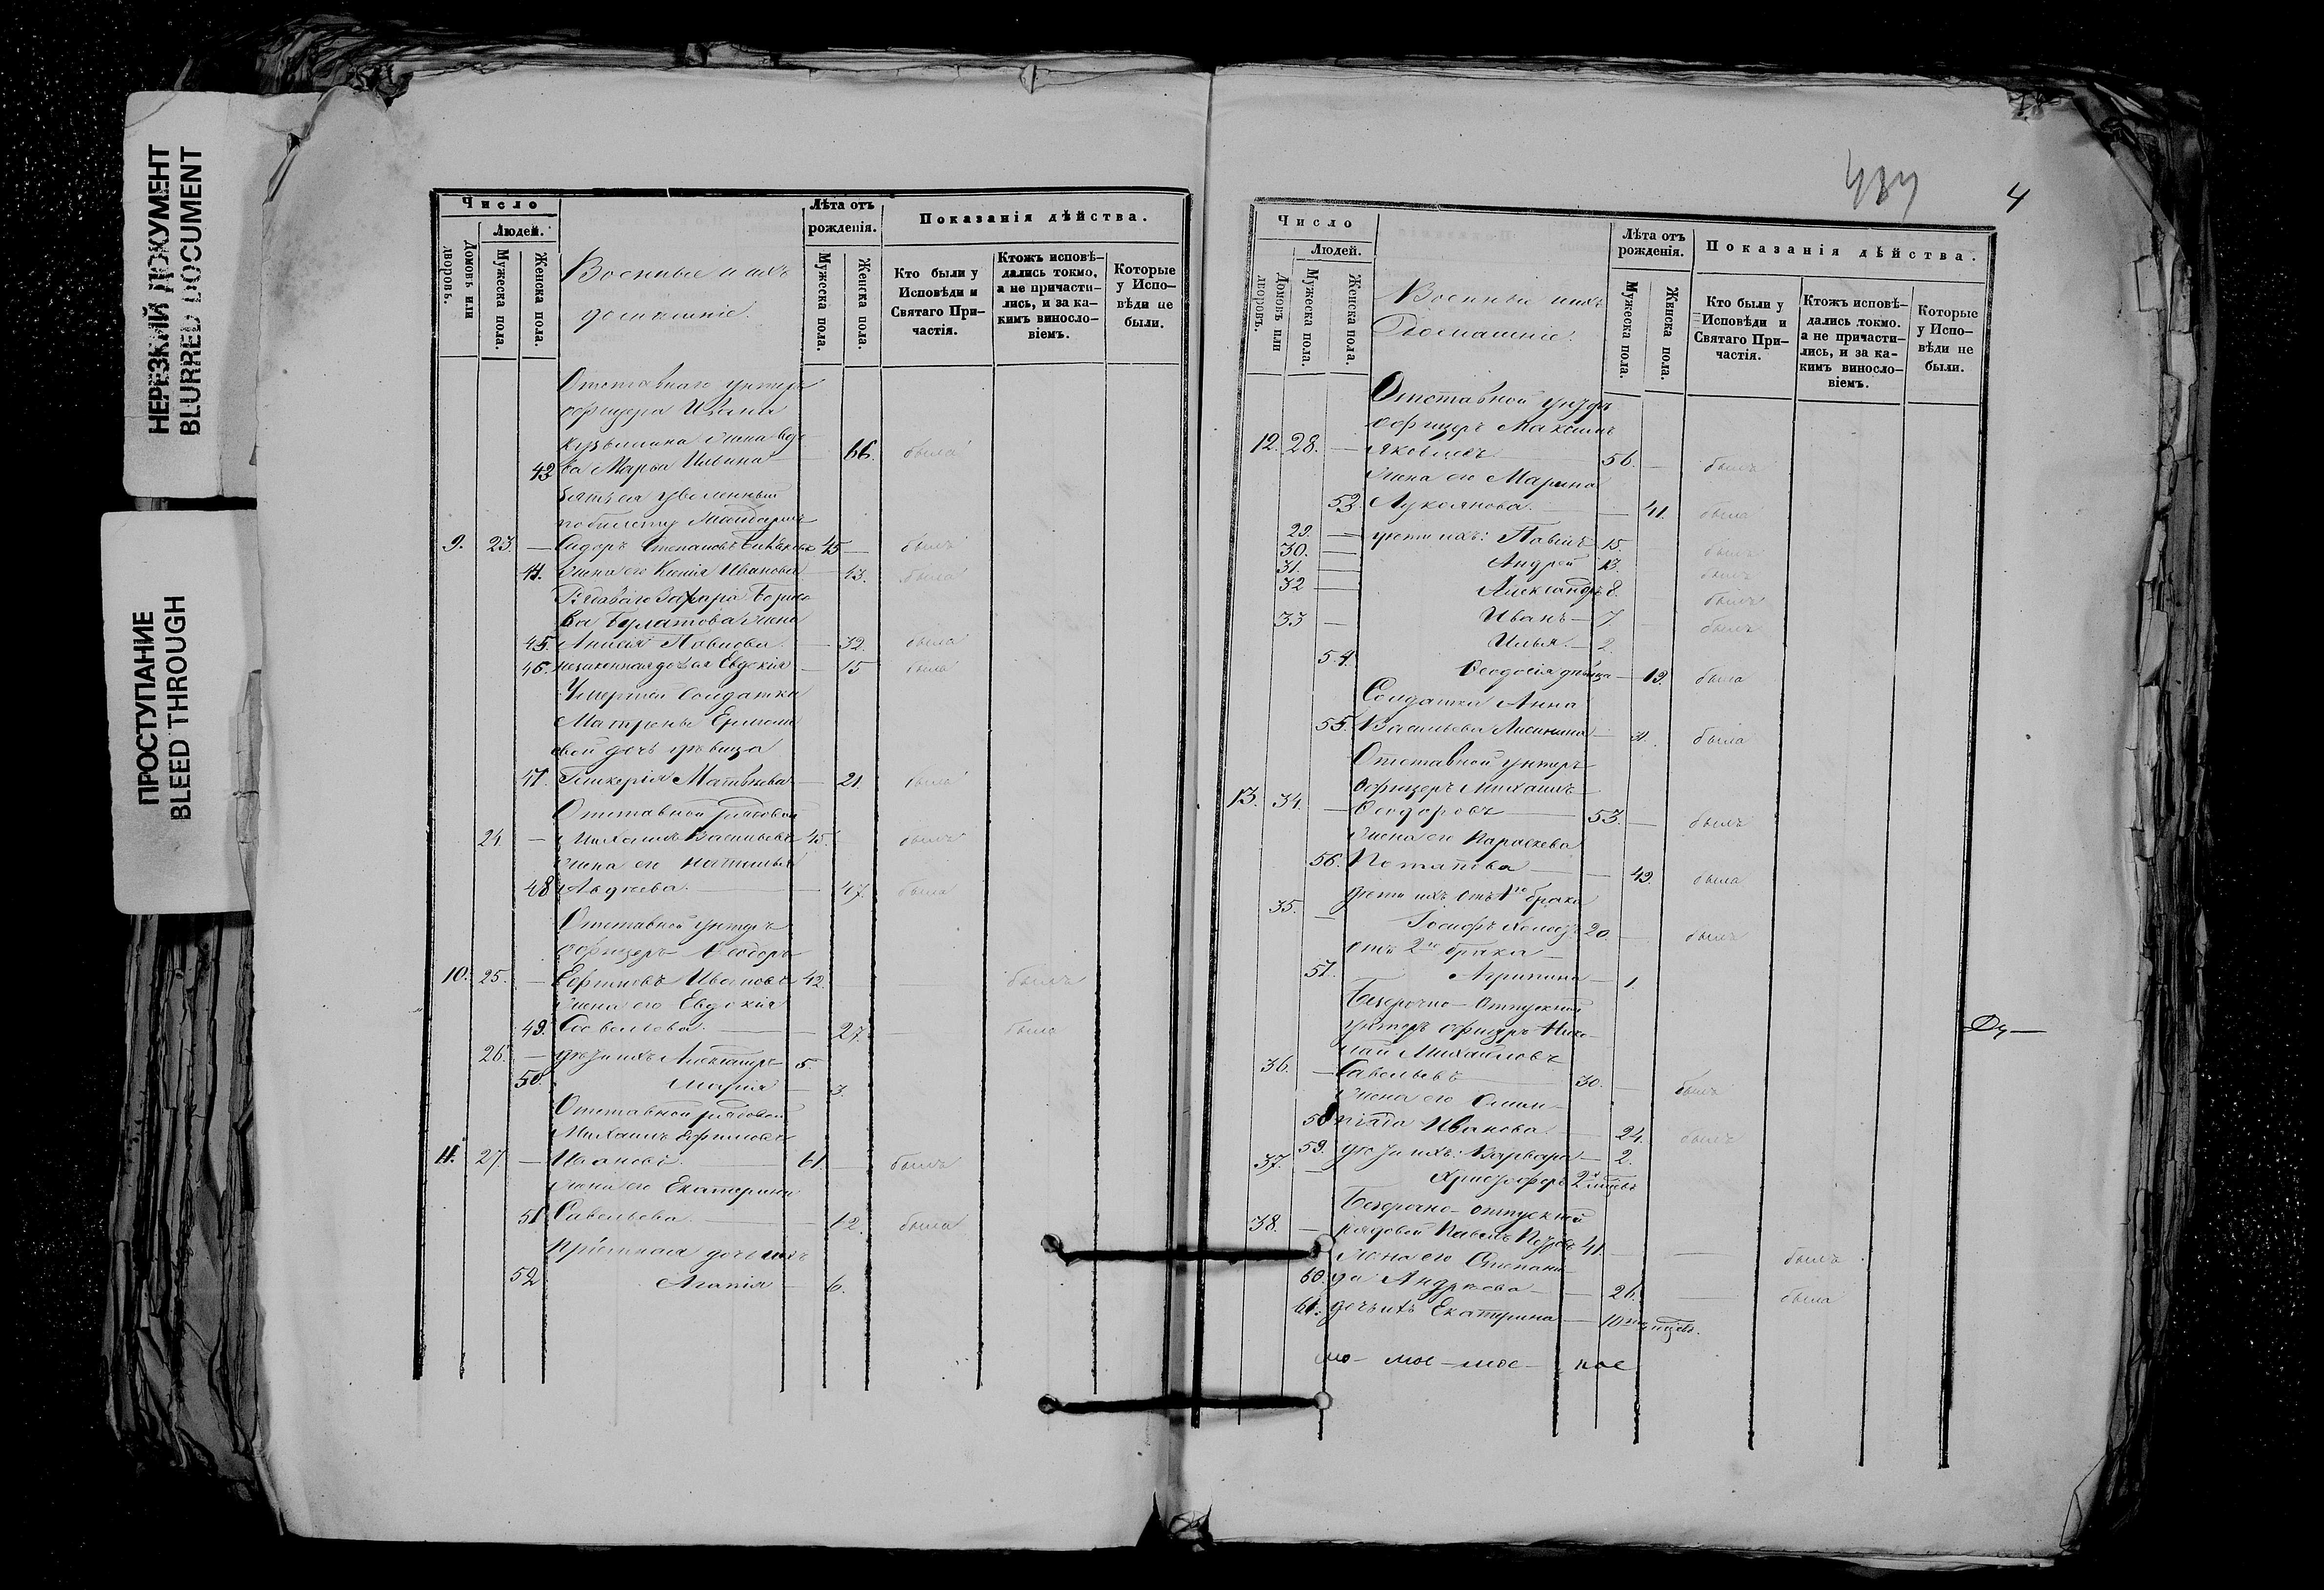 НЕРЕЗКИЙ ДОКУМЕНТ
BLURRED DOCUMENT
ПРОСТУПАНИЕ
BLEED THROUGH
Число
Людей.
Домовъ или дворовъ.
Мужеска пола.
Женска пола.
Военные и ихъ
домашніе.
Лѣта отъ рожденія.
Мужеска пола.
Женска пола.
Показанія дѣйства.
Кто были у Исповѣди и Святаго Причастія.
Ктожъ исповѣдались токмо, а не причастились, и за какимъ винословіемъ.
Которые у Исповѣди не были.
Отставнаго унтеръ
офицера Ивана
Кузьмина жена вдо
43 ва Марья Ильина — 66. была
Зять ея уволенный
по билету
9. 23. — Сидоръ Степановъ 45 — былъ
44. жена его Ксенія Иванова — 43. была
45. Анисія Павлова — 32. была
46. незаконная дочь ея Евдокія — 15 была
Умершей солдатки
Матроны Ермола
евой дочь дѣвица
47. Гликерія Матвѣева — 21. была
Отставной рядовой
24 — Михаилъ Васильевъ 45. былъ
жена его Наталья
48 Авдѣева. — 47. была
Отставной унтеръ
офицеръ Ѳеодоръ
10. 25. — Ефимовъ Ивановъ 42. былъ
жена его Евдокія
49. Савельева. — 27. — была
26. — дѣти ихъ Александръ 5.
50. Марія — 3.
Отставной рядовой
Михаилъ Ефимовъ
11. 27 — Ивановъ. 61. былъ
жена его Екатерина
51 Савельева. — 62. была
Пріемная дочь ихъ
52 Агапія — 6.
4
Число
Людей.
Домовъ или дворовъ.
Мужеска пола.
Женска пола.
Военные и ихъ
Домашніе.
Лѣта отъ рожденія.
Мужеска пола.
Женска пола.
Показанія дѣйства.
Кто были у Исповѣди и Святаго Причастія.
Ктожъ исповѣдались токмо, а не причастились, и за какимъ винословіемъ.
Которые у Исповѣди не были.
Отставной унтеръ
офицеръ Максимъ
12. 28. — Яковлевъ 56. — былъ
жена его Марина
53. Лукоянова. — 41. была
29. — дѣти ихъ: Павелъ 15. былъ
30. — Андрей 13. былъ
31. — Александръ 8. былъ
32 — Иванъ — 7. былъ
33 — Илья — 2.
54. Ѳеодосія дѣвица — 19. была
Солдатка Анна
55. Васильева — 31. была
Отставной унтеръ
офицеръ Михаилъ
13. 34. — Ѳеодоровъ 53. — былъ
жена его Параскева
56. Потапова — 49. была
дѣти ихъ отъ 1го брака
35. — Іосифъ холост. 20. былъ
отъ 2го брака —
57. Агрипина — 1.
Безсрочно-отпускной
унтеръ офицеръ Нико-
лай Михайловъ
36. — Савельевъ 30. — былъ
жена его Олим-
58 піада Иванова. — 24. была
59. дѣти ихъ: Варвара — 2.
37. — Христофоръ 2 х мѣсяцевъ
Безсрочно-отпускной
38. — рядовой Павелъ Петровъ 41. — былъ
жена его Степани-
60. да Андреева — 26. — была
61. дочь ихъ Екатерина — 10 мѣсяцевъ.